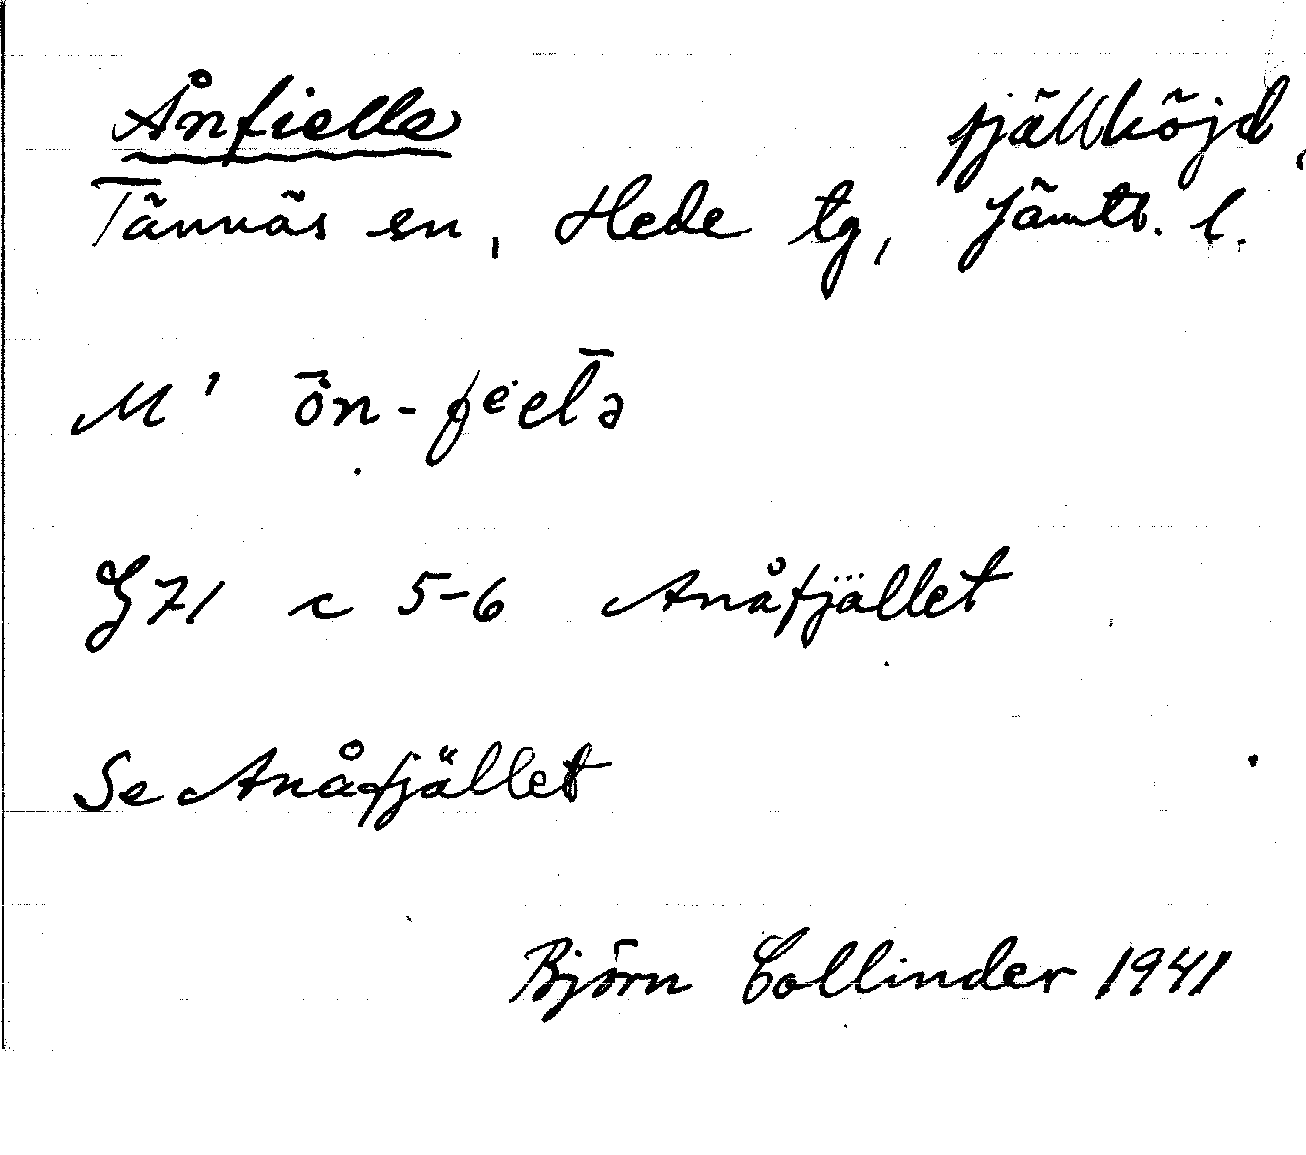 Ånfielle fjällhöjd,
Tännäs sn, Hede tg, Jämtl. l.
M' ōn-feelə
G71 c 5-6 Anåfjället
Se Anåfjället
Björn Collinder 1941